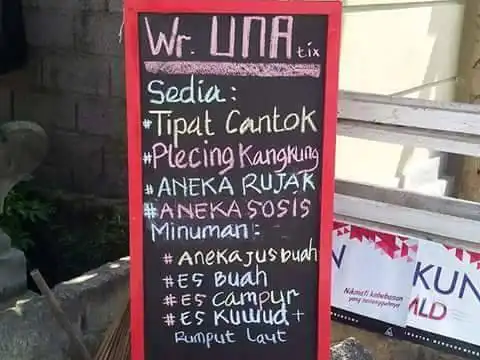 Wr. UNA tix
Sedia :
#Tipat Cantok
#Plecing Kangkung
#ANEKA RUJAK
#ANEKA SOSIS
Minuman :
#Aneka jus buah
#ES Buah
#ES campur
#ES Kuwud +
Rumput Laut
N
KUN
Nikmati kebebasan
yang bertanggungjawab
ALD